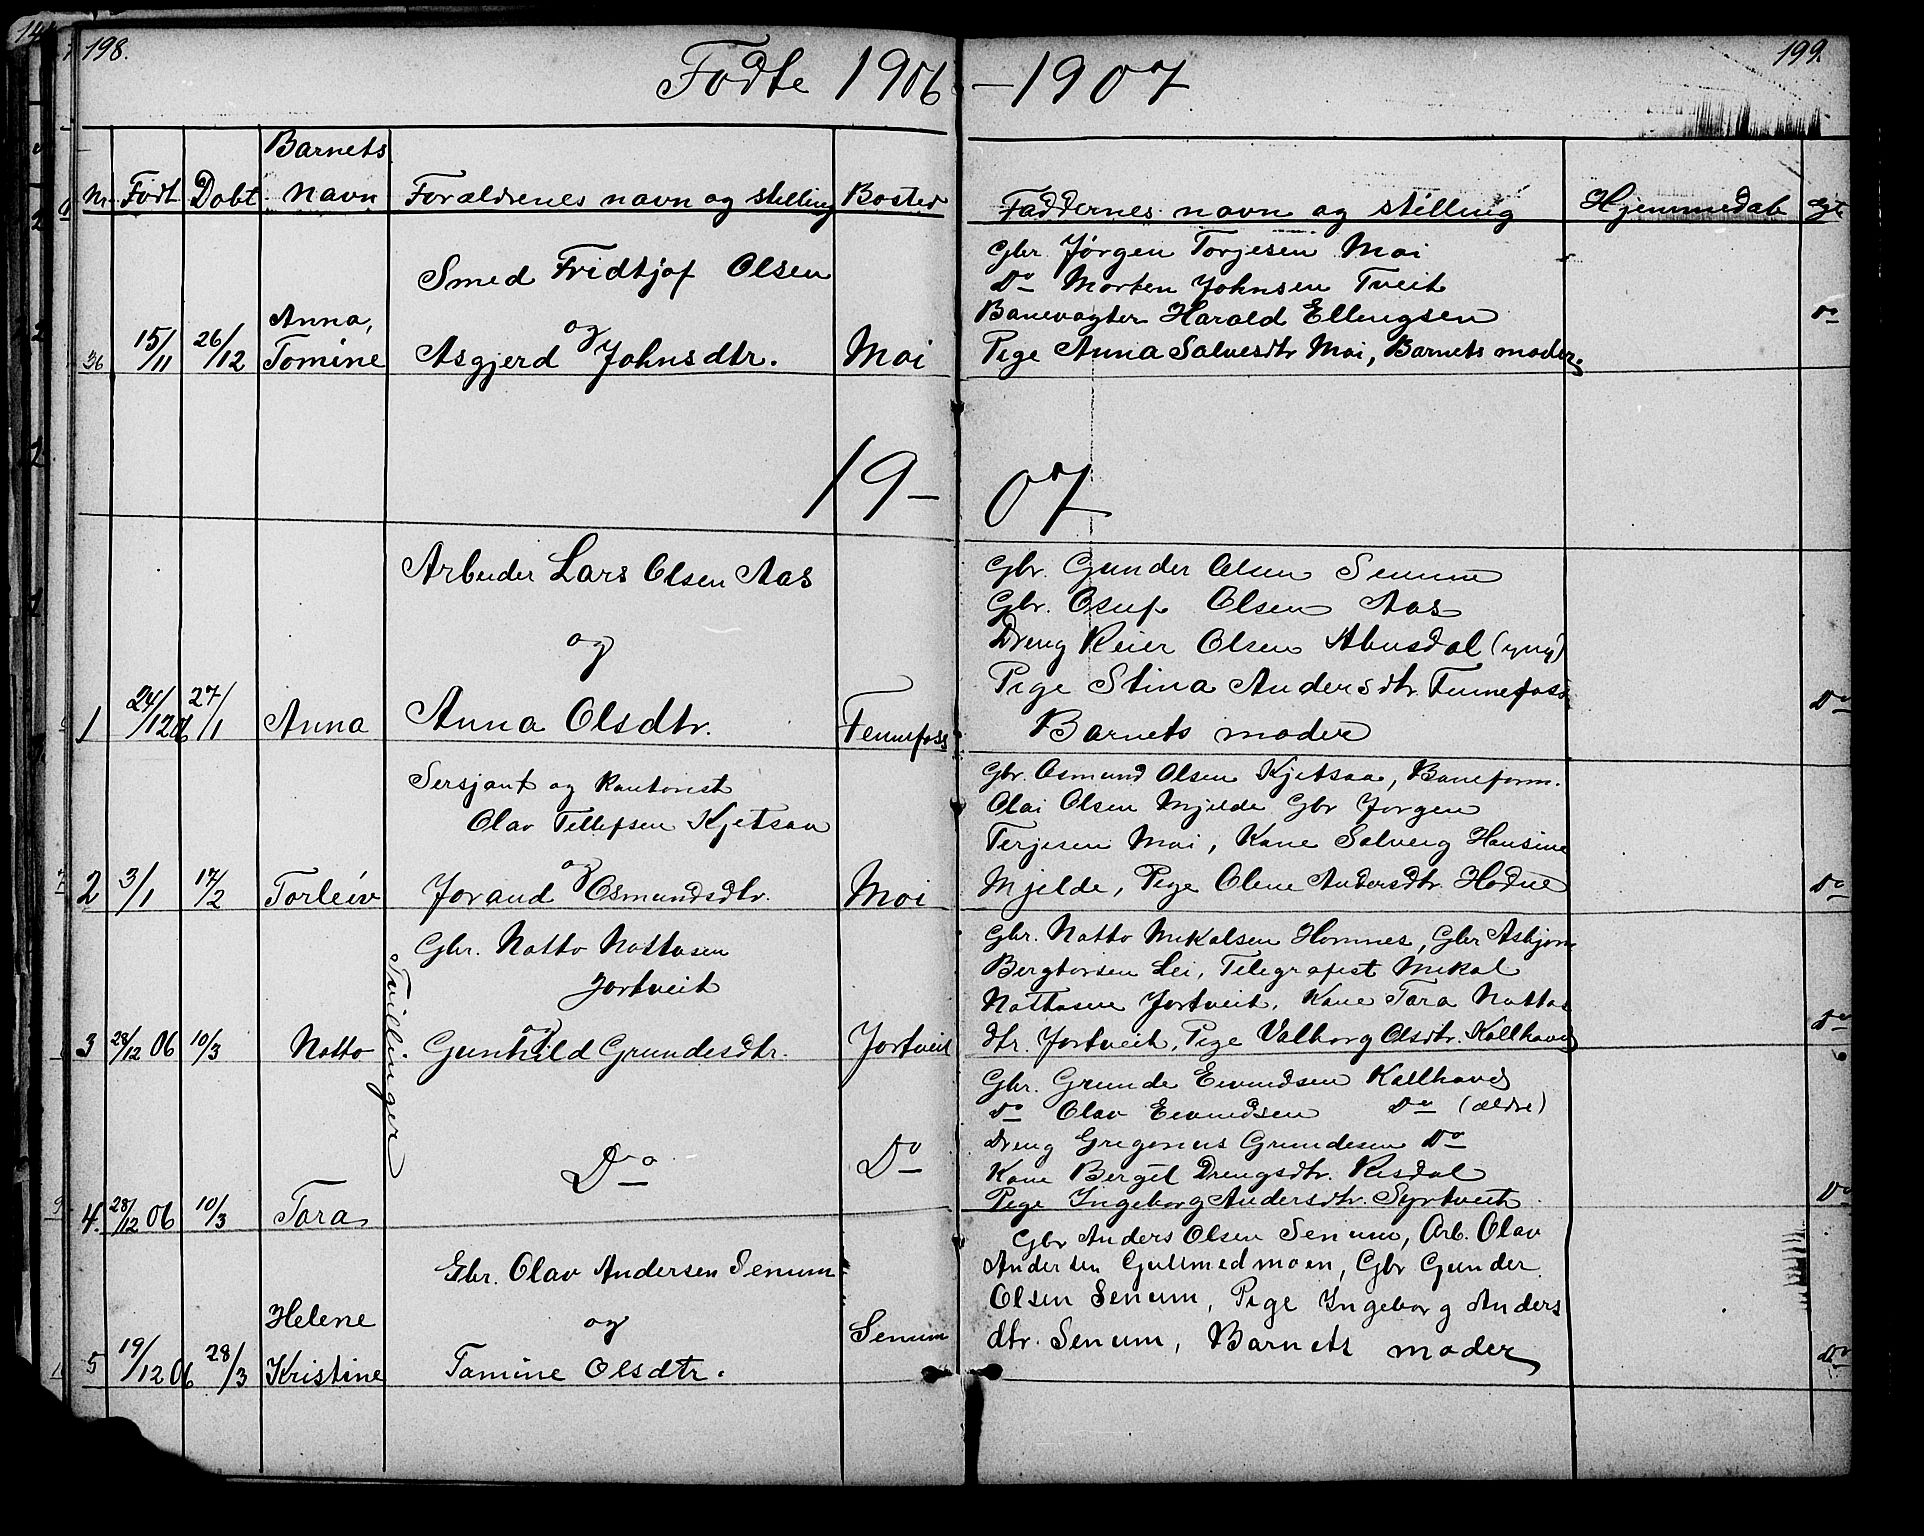 198.
199.
Fødte 1906 – 1907
Nr. Født Døbt Barnets navn Forældrenes navn og stilling Bosted
Faddernes navn og stilling Hjemmedøb
36 15/11 26/12 Anna, Tomine
Smed Fridtjof Olsen
og
Asgjerd Johnsdtr.
Moi
Gbr. Jørgen Torjesen Moi
Do Morten Johnsen Tveit
Banevogter Harald Ellengsen
Pige Anna Salvesdtr Moi, Barnets moder.
Do
19– 07
1 24/12 06 27/1 Anna
Arbeider Lars Olsen Aas
og
Anna Olsdtr.
Fennefoss
Gbr. Gunder Olsen Senum
Gbr. Osuf Olsen Aas
Dreng Reier Olsen Abusdal (yng)
Pige Stina Andersdtr. Fennefoss
Barnets moder
Do
2 3/1 17/2 Torleiv
Sersjant og kantonist
Olav Tellefsen Kjetsaa
og
Jorand Osmundsdtr.
Moi
Gbr. Osmund Olsen Kjetsaa, Baneform.
Olai Olsen Mjelde, Gbr Jørgen
Terjesen Moi, Kone Solveig Hansine
Mjelde, Pige Olene Andersdtr. Hodne
Do
3 28/12 06 10/3 Notto
Tvillinger
Gbr. Notto Nottosen
Jortveit
og
Gunhild Grundesdtr.
Jortveit
Gbr. Notto Mikalsen Homnes, Gbr Asbjørn
Bergtorsen Lei, Telegrafist Mikal
Nottosen Jortveit, Kone Tara Nottos
dtr. Jortveit, Pige Valborg Olsdtr. Kallhovd
Do
4. 28/12 06 10/3 Tara
Do
Do
Gbr. Grunde Eivindsen Kallhovd
Do Olav Eivindsen Do (ældre)
Dreng Gregorius Grundesen Do
Kone Bergit Drengsdtr. Risdal
Pige Ingeborg Andersdtr. Syrtveit
Do
5 19/12 06 28/3 Helene Kristine
Gbr. Olav Andersen Senum
og
Tomine Olsdtr.
Senum
Gbr Anders Olsen Senum, Arb. Olav
Andersen Gullsmedmoen, Gbr Gunder
Olsen Senum, Pige Ingeborg Anders
dtr. Senum, Barnets moder
Do